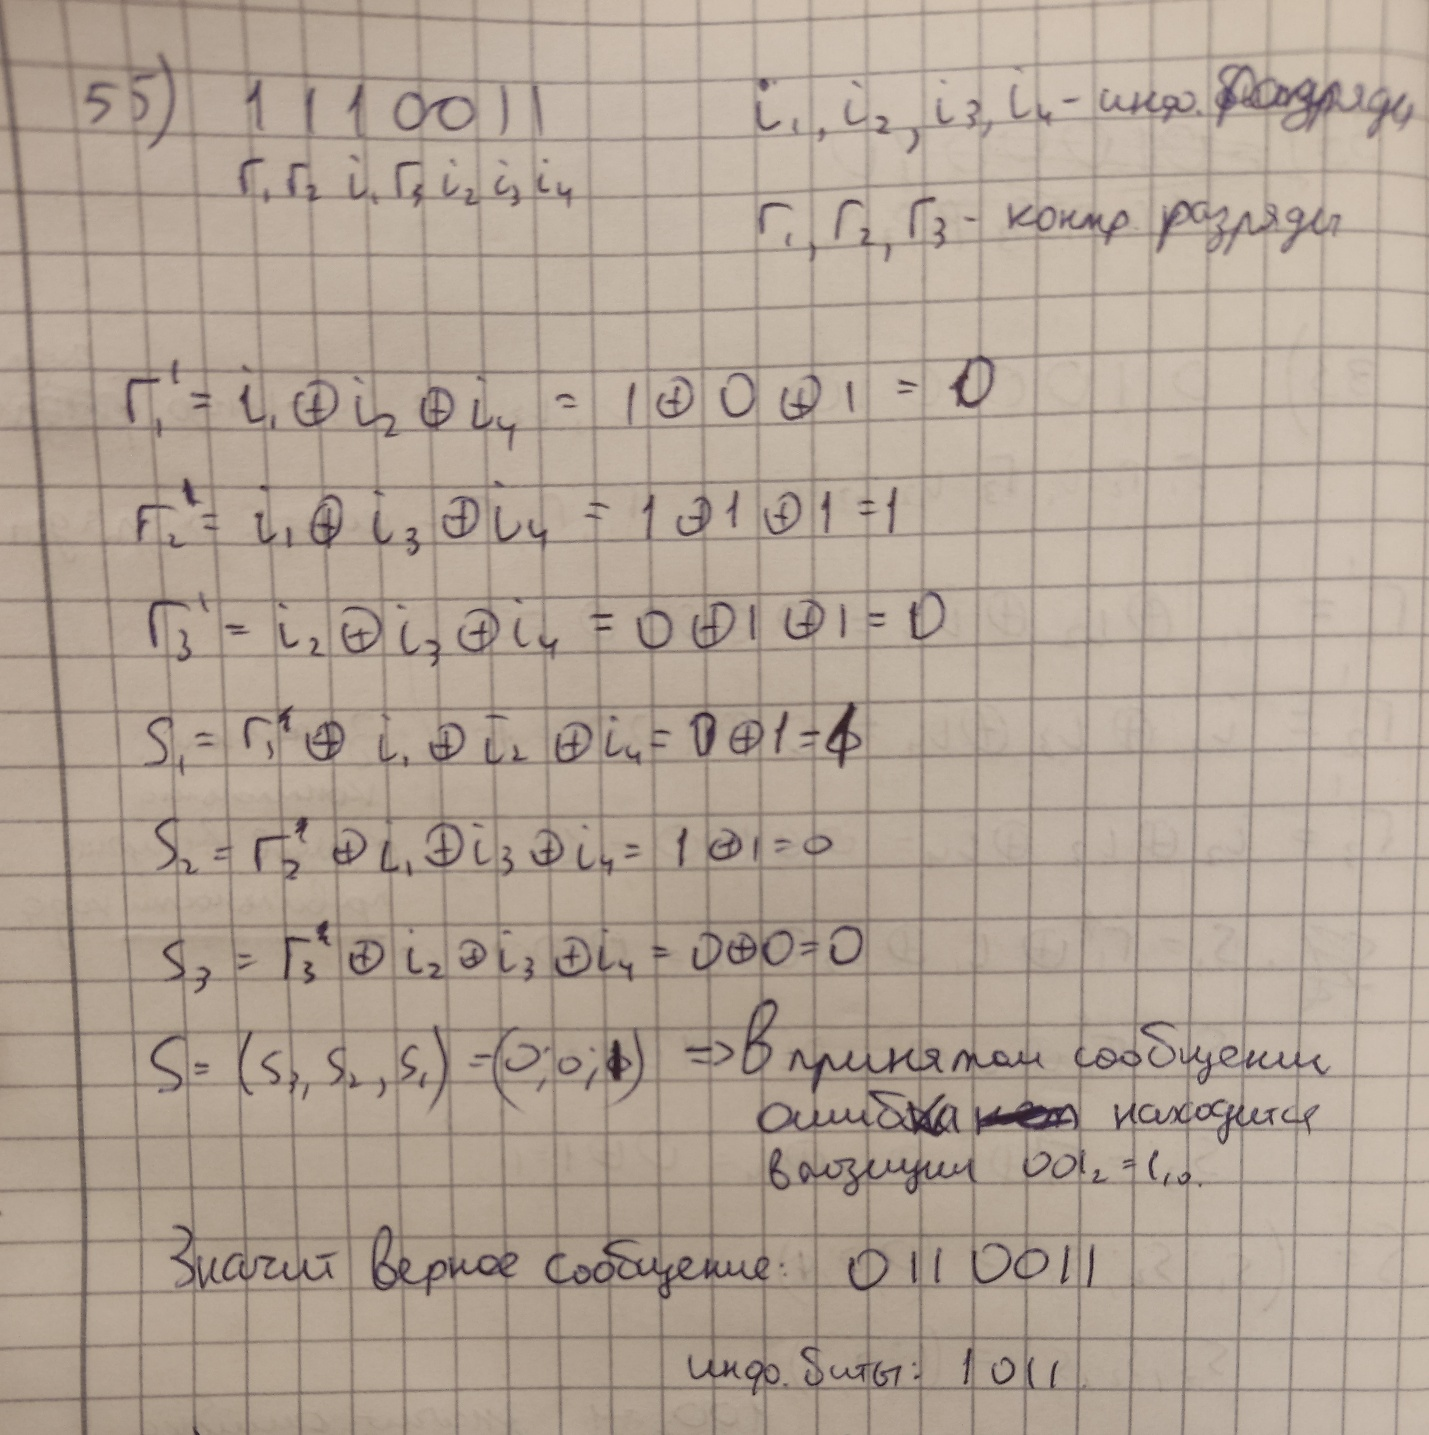 55) 1 1 1 0 0 1 1 i₁, i₂, i₃, i₄ - инф. разряды
r₁ r₂ i₁ r₃ i₂ i₃ i₄
r₁, r₂, r₃ - контр. разряды
r₁' = i₁ ⊕ i₂ ⊕ i₄ = 1 ⊕ 0 ⊕ 1 = 0
r₂' = i₁ ⊕ i₃ ⊕ i₄ = 1 ⊕ 1 ⊕ 1 = 1
r₃' = i₂ ⊕ i₃ ⊕ i₄ = 0 ⊕ 1 ⊕ 1 = 0
S₁ = r₁ ⊕ i₁ ⊕ i₂ ⊕ i₄ = 0 ⊕ 1 = 1
S₂ = r₂ ⊕ i₁ ⊕ i₃ ⊕ i₄ = 1 ⊕ 1 = 0
S₃ = r₃ ⊕ i₂ ⊕ i₃ ⊕ i₄ = 0 ⊕ 0 = 0
S = (S₃, S₂, S₁) = (0; 0; 1) => В принятом сообщении
ошибка находится
в позиции 001₂ = 1₁₀.
Значит верное сообщение: 0110011
инфо. биты: 1011